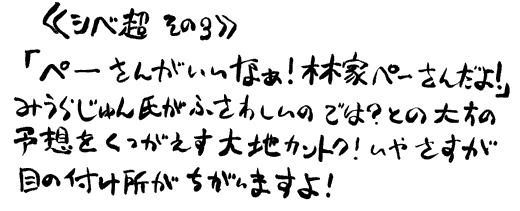 《シベ超 その3》
「ペーさんがいいなぁ!林家ペーさんだよ!」
みうらじゅん氏がふさわしいのでは?との大方の
予想をくつがえす大地カントク!いやさすが
目の付け所がちがいますよ!